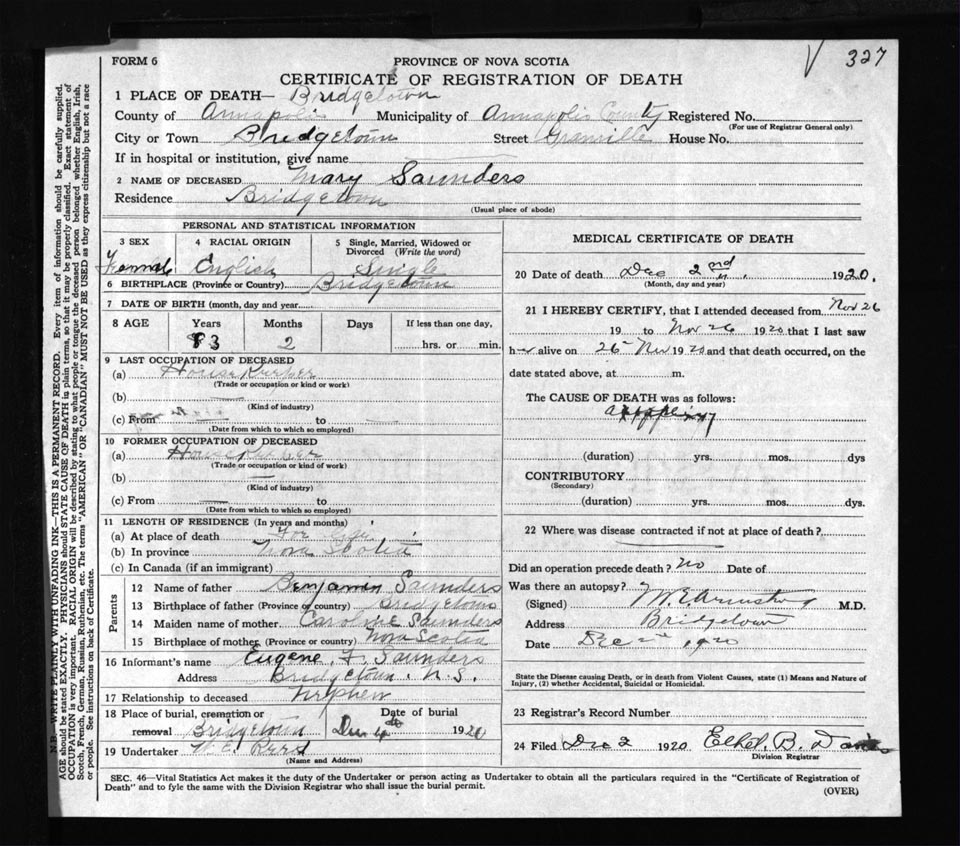 V 327
FORM 6
PROVINCE OF NOVA SCOTIA
CERTIFICATE OF REGISTRATION OF DEATH
1 PLACE OF DEATH— Bridgetown
County of Annapolis Municipality of Annapolis County Registered No.
(For use of Registrar General only)
City or Town Bridgetown Street Granville House No.
If in hospital or institution, give name
2 NAME OF DECEASED Mary Saunders
Residence Bridgetown
(Usual place of abode)
PERSONAL AND STATISTICAL INFORMATION
3 SEX 4 RACIAL ORIGIN 5 Single, Married, Widowed or
Divorced (Write the word)
Female English Single
6 BIRTHPLACE (Province or Country) Bridgetown
7 DATE OF BIRTH (month, day and year)
8 AGE Years Months Days If less than one day,
83 2 hrs. or min.
9 LAST OCCUPATION OF DECEASED
(a) House Keeper
(Trade or occupation or kind or work)
(b) —
(Kind of industry)
(c) From to
(Date from which to which so employed)
10 FORMER OCCUPATION OF DECEASED
(a) House Keeper
(Trade or occupation or kind of work)
(b) —
(Kind of industry)
(c) From — to
(Date from which to which so employed)
11 LENGTH OF RESIDENCE (In years and months)
(a) At place of death For life
(b) In province Nova Scotia
(c) In Canada (if an immigrant)
Parents
12 Name of father Benjamin Saunders
13 Birthplace of father (Province or country) Bridgetown
14 Maiden name of mother Caroline Saunders
15 Birthplace of mother (Province or country) Nova Scotia
16 Informant's name Eugene. F. Saunders
Address Bridgetown. N.S.
17 Relationship to deceased Nephew
18 Place of burial, cremation or Date of burial
removal Bridgetown Dec 4th 1920
19 Undertaker W. E. Reed
(Name and Address)
MEDICAL CERTIFICATE OF DEATH
20 Date of death Dec 2nd 1920.
(Month, day and year)
21 I HEREBY CERTIFY, that I attended deceased from Nov 26
19 to Nov 26 1920 that I last saw
her alive on 26 Nov 1920 and that death occurred, on the
date stated above, at m.
The CAUSE OF DEATH was as follows:
(duration) yrs. mos. dys
CONTRIBUTORY
(Secondary)
(duration) yrs. mos. dys.
22 Where was disease contracted if not at place of death?
Did an operation precede death? No Date of
Was there an autopsy?
(Signed) M. E. Armstrong M.D.
Address Bridgetown
Date Dec 2nd 1920
State the Disease causing Death, or in death from Violent Causes, state (1) Means and Nature of
Injury, (2) whether Accidental, Suicidal or Homicidal.
23 Registrar's Record Number
24 Filed Dec 2 1920 Ethel. B.
Division Registrar
SEC. 46—Vital Statistics Act makes it the duty of the Undertaker or person acting as Undertaker to obtain all the particulars required in the "Certificate of Registration of
Death" and to fyle the same with the Division Registrar who shall issue the burial permit.
(OVER)
N.B.—WRITE PLAINLY WITH UNFADING INK—THIS IS A PERMANENT RECORD. Every item of information should be carefully supplied.
AGE should be stated EXACTLY. PHYSICIANS should STATE CAUSE OF DEATH in plain terms, so that it may be properly classified. Exact statement of
OCCUPATION is very important. RACIAL ORIGIN will be described by stating to what people or tongue the deceased person belonged whether English, Irish,
Scotch, French, German, Russian, Ruthenian, etc. The terms "AMERICAN" OR "CANADIAN" MUST NOT BE USED as they express citizenship but not a race
or people. See instructions on back of Certificate.